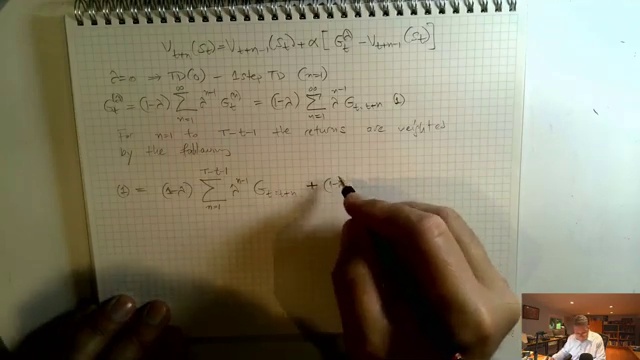 V_{t+n}(S_t) = V_{t+n-1}(S_t) + α[G_t^λ − V_{t+n-1}(S_t)]
λ=0 ⇒ TD(0) − 1 step TD (n=1)
G_t^{(λ)} = (1−λ) ∑_{n=1}^{∞} λ^{n-1} G_t^{(n)} = (1−λ) ∑_{n=1}^{∞} λ^{n-1} G_{t:t+n} (1)
For n=1 to T−t−1 the returns are weighted
by the following
(1) = (1−λ) ∑_{n=1}^{T−t−1} λ^{n-1} G_{t:t+n} + (1−λ